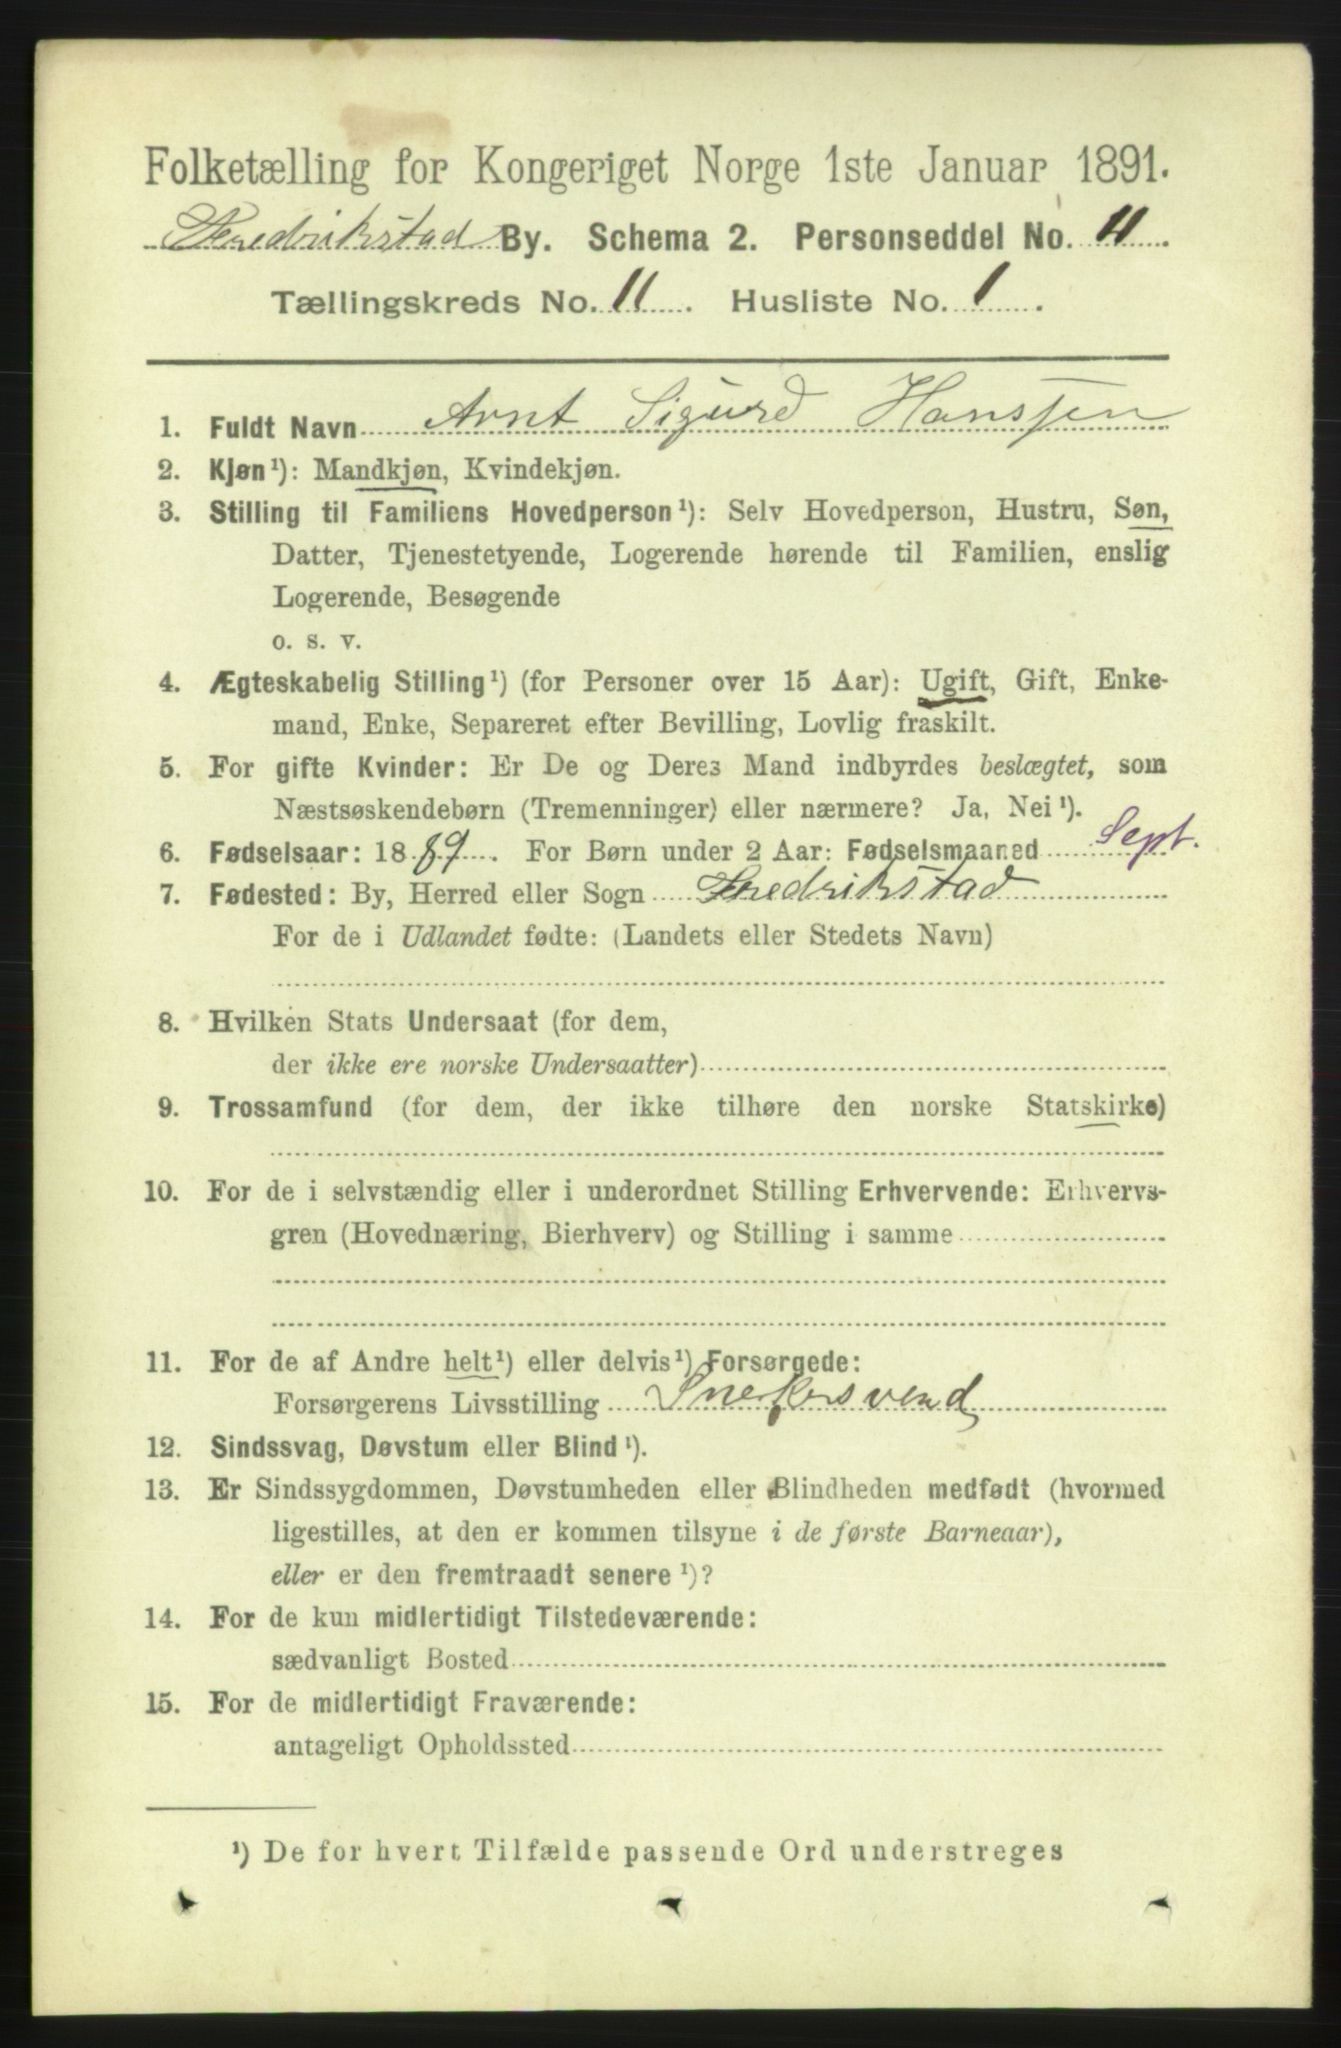 Folketælling for Kongeriget Norge 1ste Januar 1891.
Fredrikstad By. Schema 2. Personseddel No. 11.
Tællingskreds No. 11. Husliste No. 1.
1. Fuldt Navn Arnt Sigurd Hanssen
2. Kjøn¹): Mandkjøn, Kvindekjøn.
3. Stilling til Familiens Hovedperson¹): Selv Hovedperson, Hustru, Søn,
Datter, Tjenestetyende, Logerende hørende til Familien, enslig
Logerende, Besøgende
o. s. v.
4. Ægteskabelig Stilling¹) (for Personer over 15 Aar): Ugift, Gift, Enke-
mand, Enke, Separeret efter Bevilling, Lovlig fraskilt.
5. For gifte Kvinder: Er De og Deres Mand indbyrdes beslægtet, som
Næstsøskendebørn (Tremenninger) eller nærmere? Ja, Nei¹).
6. Fødselsaar: 1889. For Børn under 2 Aar: Fødselsmaaned Sept.
7. Fødested: By, Herred eller Sogn Fredrikstad
For de i Udlandet fødte: (Landets eller Stedets Navn)
8. Hvilken Stats Undersaat (for dem,
der ikke ere norske Undersaatter)
9. Trossamfund (for dem, der ikke tilhøre den norske Statskirke)
10. For de i selvstændig eller i underordnet Stilling Erhvervende: Erhvervs-
gren (Hovednæring, Bierhverv) og Stilling i samme
11. For de af Andre helt¹) eller delvis¹) Forsørgede:
Forsørgerens Livsstilling Snekersvend
12. Sindssvag, Døvstum eller Blind¹).
13. Er Sindssygdommen, Døvstumheden eller Blindheden medfødt (hvormed
ligestilles, at den er kommen tilsyne i de første Barneaar),
eller er den fremtraadt senere¹)?
14. For de kun midlertidigt Tilstedeværende:
sædvanligt Bosted
15. For de midlertidigt Fraværende:
antageligt Opholdssted
¹) De for hvert Tilfælde passende Ord understreges